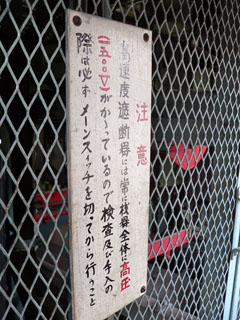 注意
高速度遮断器には常に機器全体に高圧
(一五〇〇V)がかゝっているので検査及び手入の
際は必ずメーンスイッチを切ってから行うこと